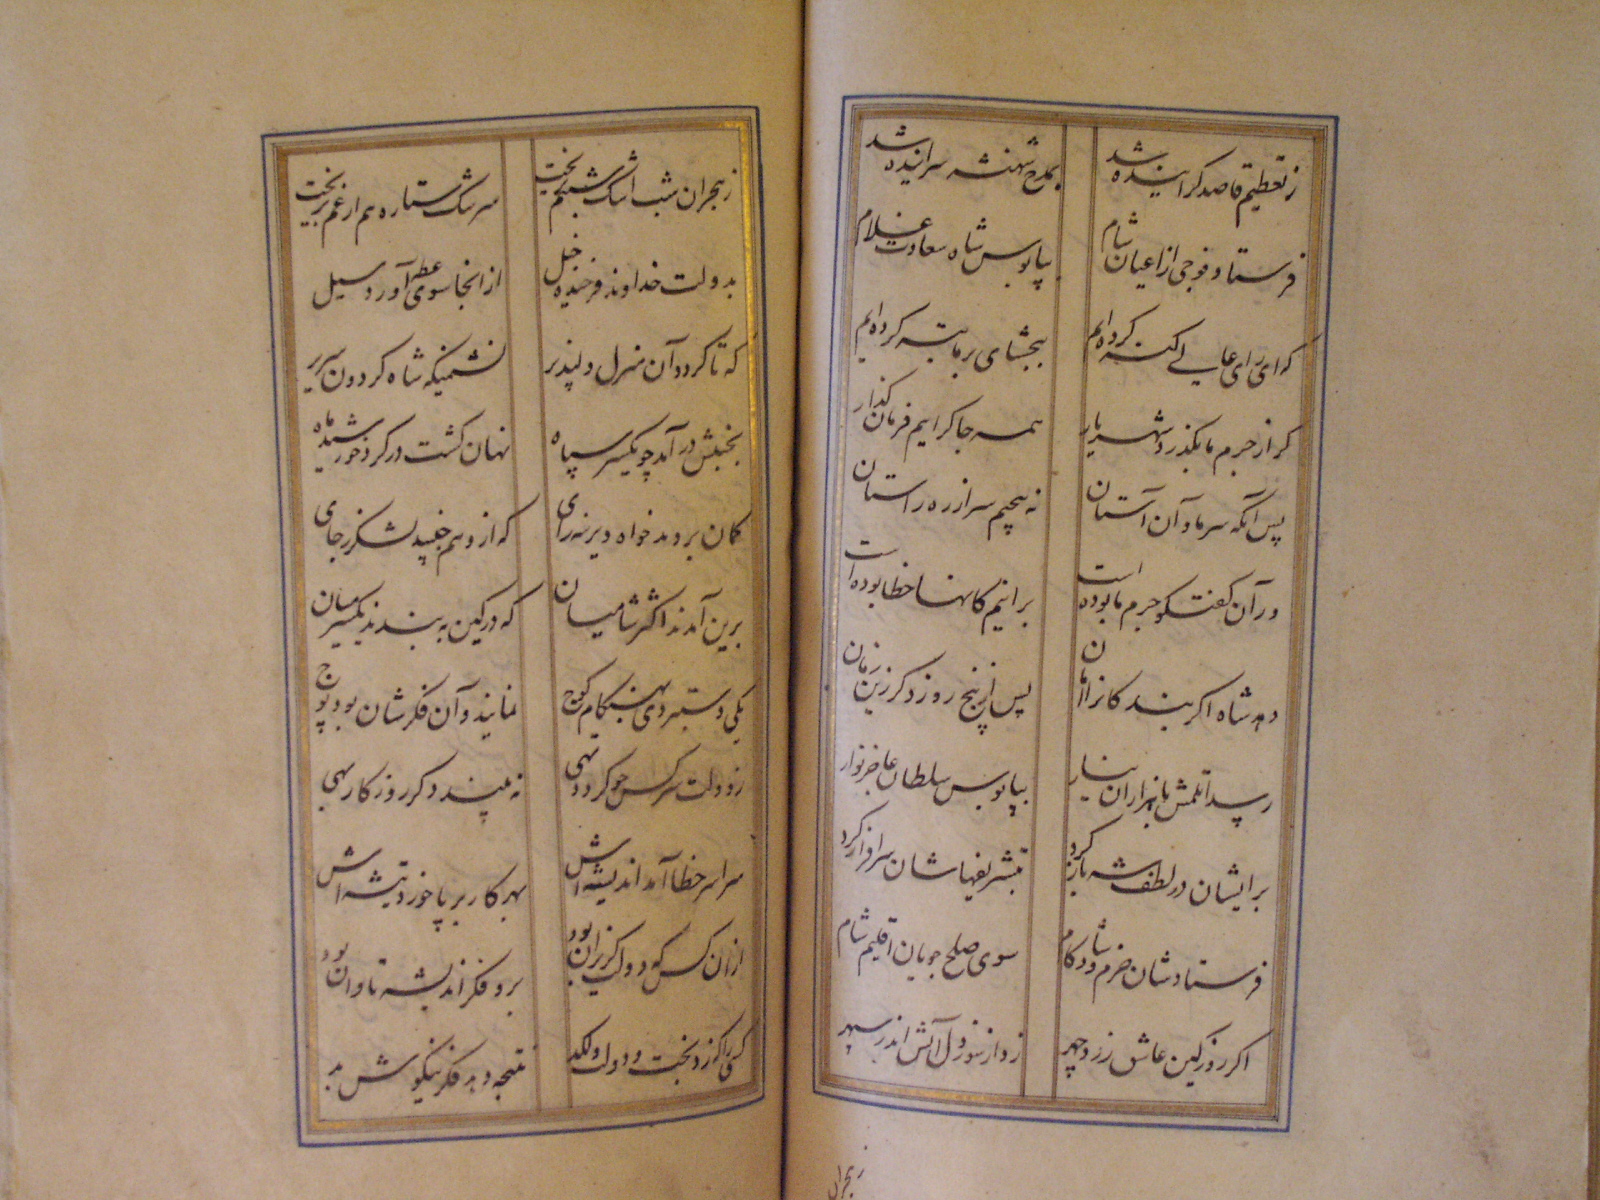 ز تعظیم قاصد گراینده شد بمدح شهنشه سراینده شد
فرستاد فوجی از اعیان شام بپابوس شاه سعادت غلام
که ای رای عالی گنه کرده ایم ببخشای بر ما تبه کرده ایم
گر از جرم ما بگذرد شهریار همه چاکرانیم فرمان گذار
پس آنگه سر ما و آن آستان نه پیچیم سر از ره راستان
در آن گفتگو جرم ما بوده است برانیم کانها خطا بوده است
دهد شاه اگر بندگانرا امان پس از پنج روز دگر زین زمان
رسد اتلمش با هزاران نیاز بپابوس سلطان عاجز نواز
بر ایشان در لطف شه باز کرد بتشریفهاشان سرافراز کرد
فرستادشان خرم و شادکام سوی صلح جویان اقلیم شام
اگر روز کین عاشق زرد چهر زد از سوز دل آتش اندر سپهر
ز هجران
ز هجران شب اشک شبنم بریخت سرشک ستاره هم از غم بریخت
بدولت خداوند فرخنده خیل از انجا سوی غطه آورد سیل
که تا گردد آن منزل دلپذیر نشیمنگه شاه گردون سریر
بجنبش در آمد چو یکسر سپاه نهان گشت در گرد خورشید و ماه
گمان برد بدخواه دیرینه رای که از وهم جنبید لشکر ز جای
برین آمدند اکثر شامیان که در کین به بندند یکسر میان
یکی دستبردی بهنگام کوچ نمایند و آن فکرشان بود پوچ
ز دولت سر کس چو گردد تهی نه بیند دگر روزگار بهی
سراسر خطا آمد اندیشه اش بهر کار بر پا خورد تیشه اش
ازان کس که دولت گریزان بود برو فکر و اندیشه تاوان بود
کسی را که زد بخت و دولت لگد نتیجه دهد فکر نیکوش بد